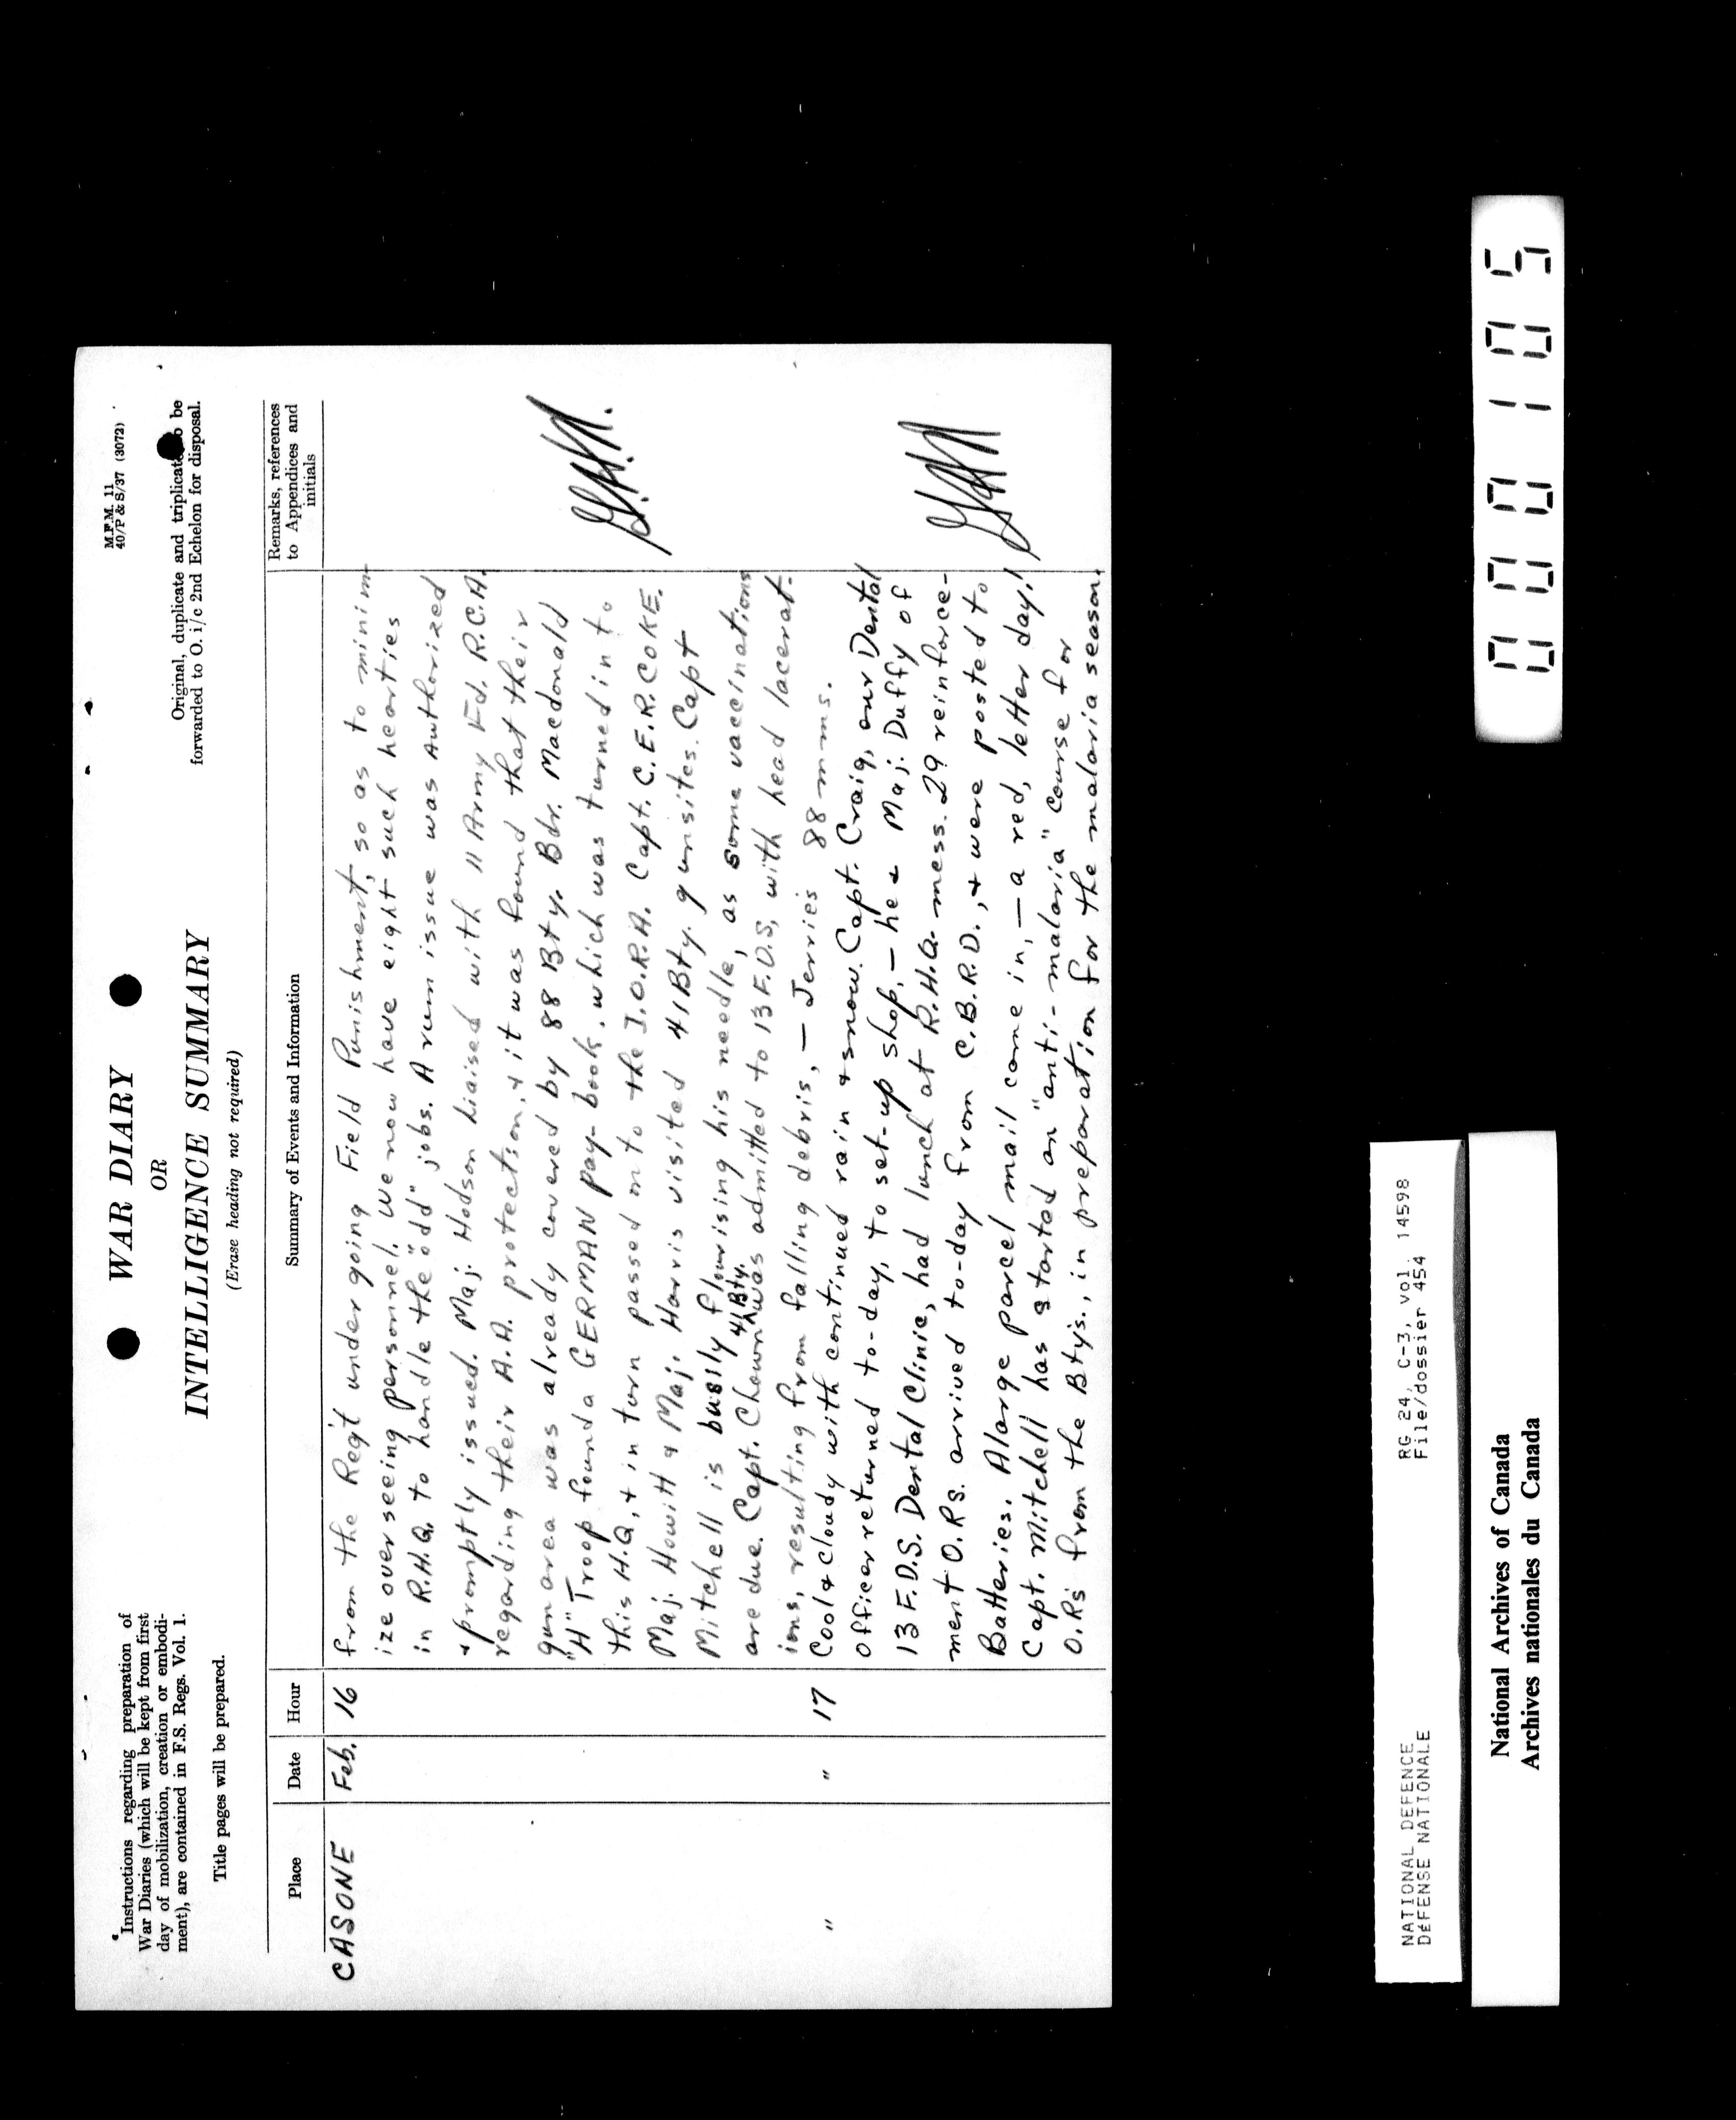 Instructions regarding preparation of
War Diaries (which will be kept from first
day of mobilization, creation or embodi-
ment), are contained in F.S. Regs. Vol. 1.
Title pages will be prepared.
WAR DIARY
OR
INTELLIGENCE SUMMARY
(Erase heading not required)
M.F.M. 11
40/P & S/37 (3072)
Original, duplicate and triplicate to be
forwarded to O. i/c 2nd Echelon for disposal.
Place Date Hour Summary of Events and Information Remarks, references
to Appendices and
initials
CASONE Feb. 16 from the Reg't under going Field Punishment, so as to minim-
ize overseeing personnel. We now have eight such hearties
in R.H.Q. to handle the "odd" jobs. A rum issue was Authorized
& promptly issued. Maj. Hodson liaised with 11 Army Fd. R.C.A.
regarding their A.A. protection, & it was found that their
gun area was already covered by 88 Bty. Bdr. Macdonald
"H" Troop found a GERMAN pay-book, which was turned in to
this H.Q, & in turn passed on to the I.O.R.A. Capt. C.E.R. COKE.
Maj. Howitt & Maj. Harris visited 41 Bty. gunsites. Capt
Mitchell is busily flourising his needle, as some vaccinations
are due. Capt. Chown 41 Bty. was admitted to 13 F.D.S, with head lacerat-
ions, resulting from falling debris, — Jerries 88 mms.
" " 17 Cool & cloudy with continued rain & snow. Capt. Craig, our Dental
Officer returned to-day, to set-up shop, — he & Maj. Duffy of
13 F.D.S. Dental Clinic, had lunch at R.H.Q. mess. 29 reinforce-
ment O.Rs. arrived to-day from C.B.R.D., & were posted to
Batteries. A large parcel mail came in, — a red, letter day!
Capt. Mitchell has started an "anti-malaria" course for
O.Rs from the Bty's., in preparation for the malaria season.
NATIONAL DEFENCE
DÉFENSE NATIONALE
RG 24, C-3, vol. 14598
File/dossier 454
National Archives of Canada
Archives nationales du Canada
000105